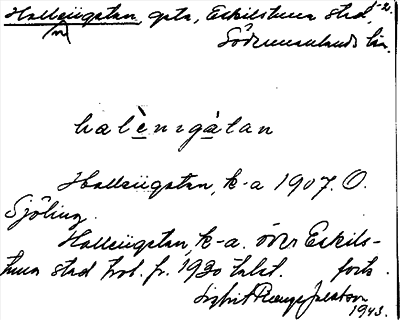 Hallengatan, gata, Eskilstuna stad,
Södermanlands län.
halènsgàtan
Hallengatan, k-a 1907. O.
Sjöling.
Hallengatan, k-a. över Eskils-
tuna stad trol. fr. 1920 talet. forts.
1943.